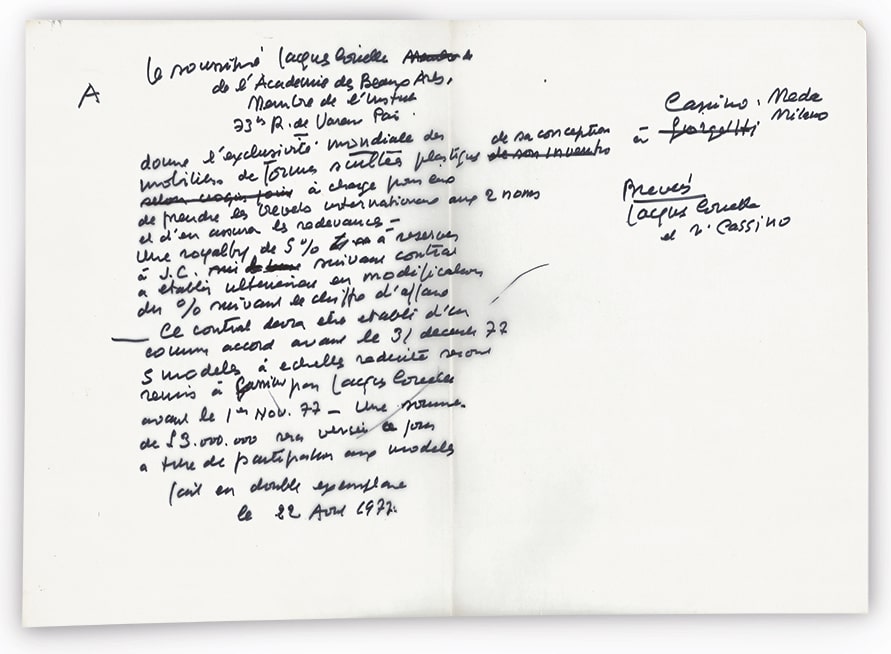 A
Le soussigné Jacques Couelle
de l'Académie des Beaux Arts,
Membre de l'Institut
73 bis R. de Varenne Paris.
donne l'exclusivité mondiale des
mobiliers de formes sculptées plastique de sa conception à
selon à charge pour eux
de prendre les brevets internationaux aux 2 noms
et d'en assurer les redevances –
Une royalty de 5% à reserver
à J.C. suivant contrat
a établir ulterieur en modification
du % suivant le chiffre d'affaire
— Ce contrat devra etre etabli d'un
commun accord avant le 31 decembre 77
5 models à echelle reduite seront
remis à Cassina par Jacques Couelle
avant le 1er Nov. 77 – Une somme
de £3.000.000 sera versée ce jour
a titre de participation aux models
fait en double exemplaire
le 22 Avril 1977.
Cassina. Meda
Milano
Brevets
Jacques Couelle
et Cassina